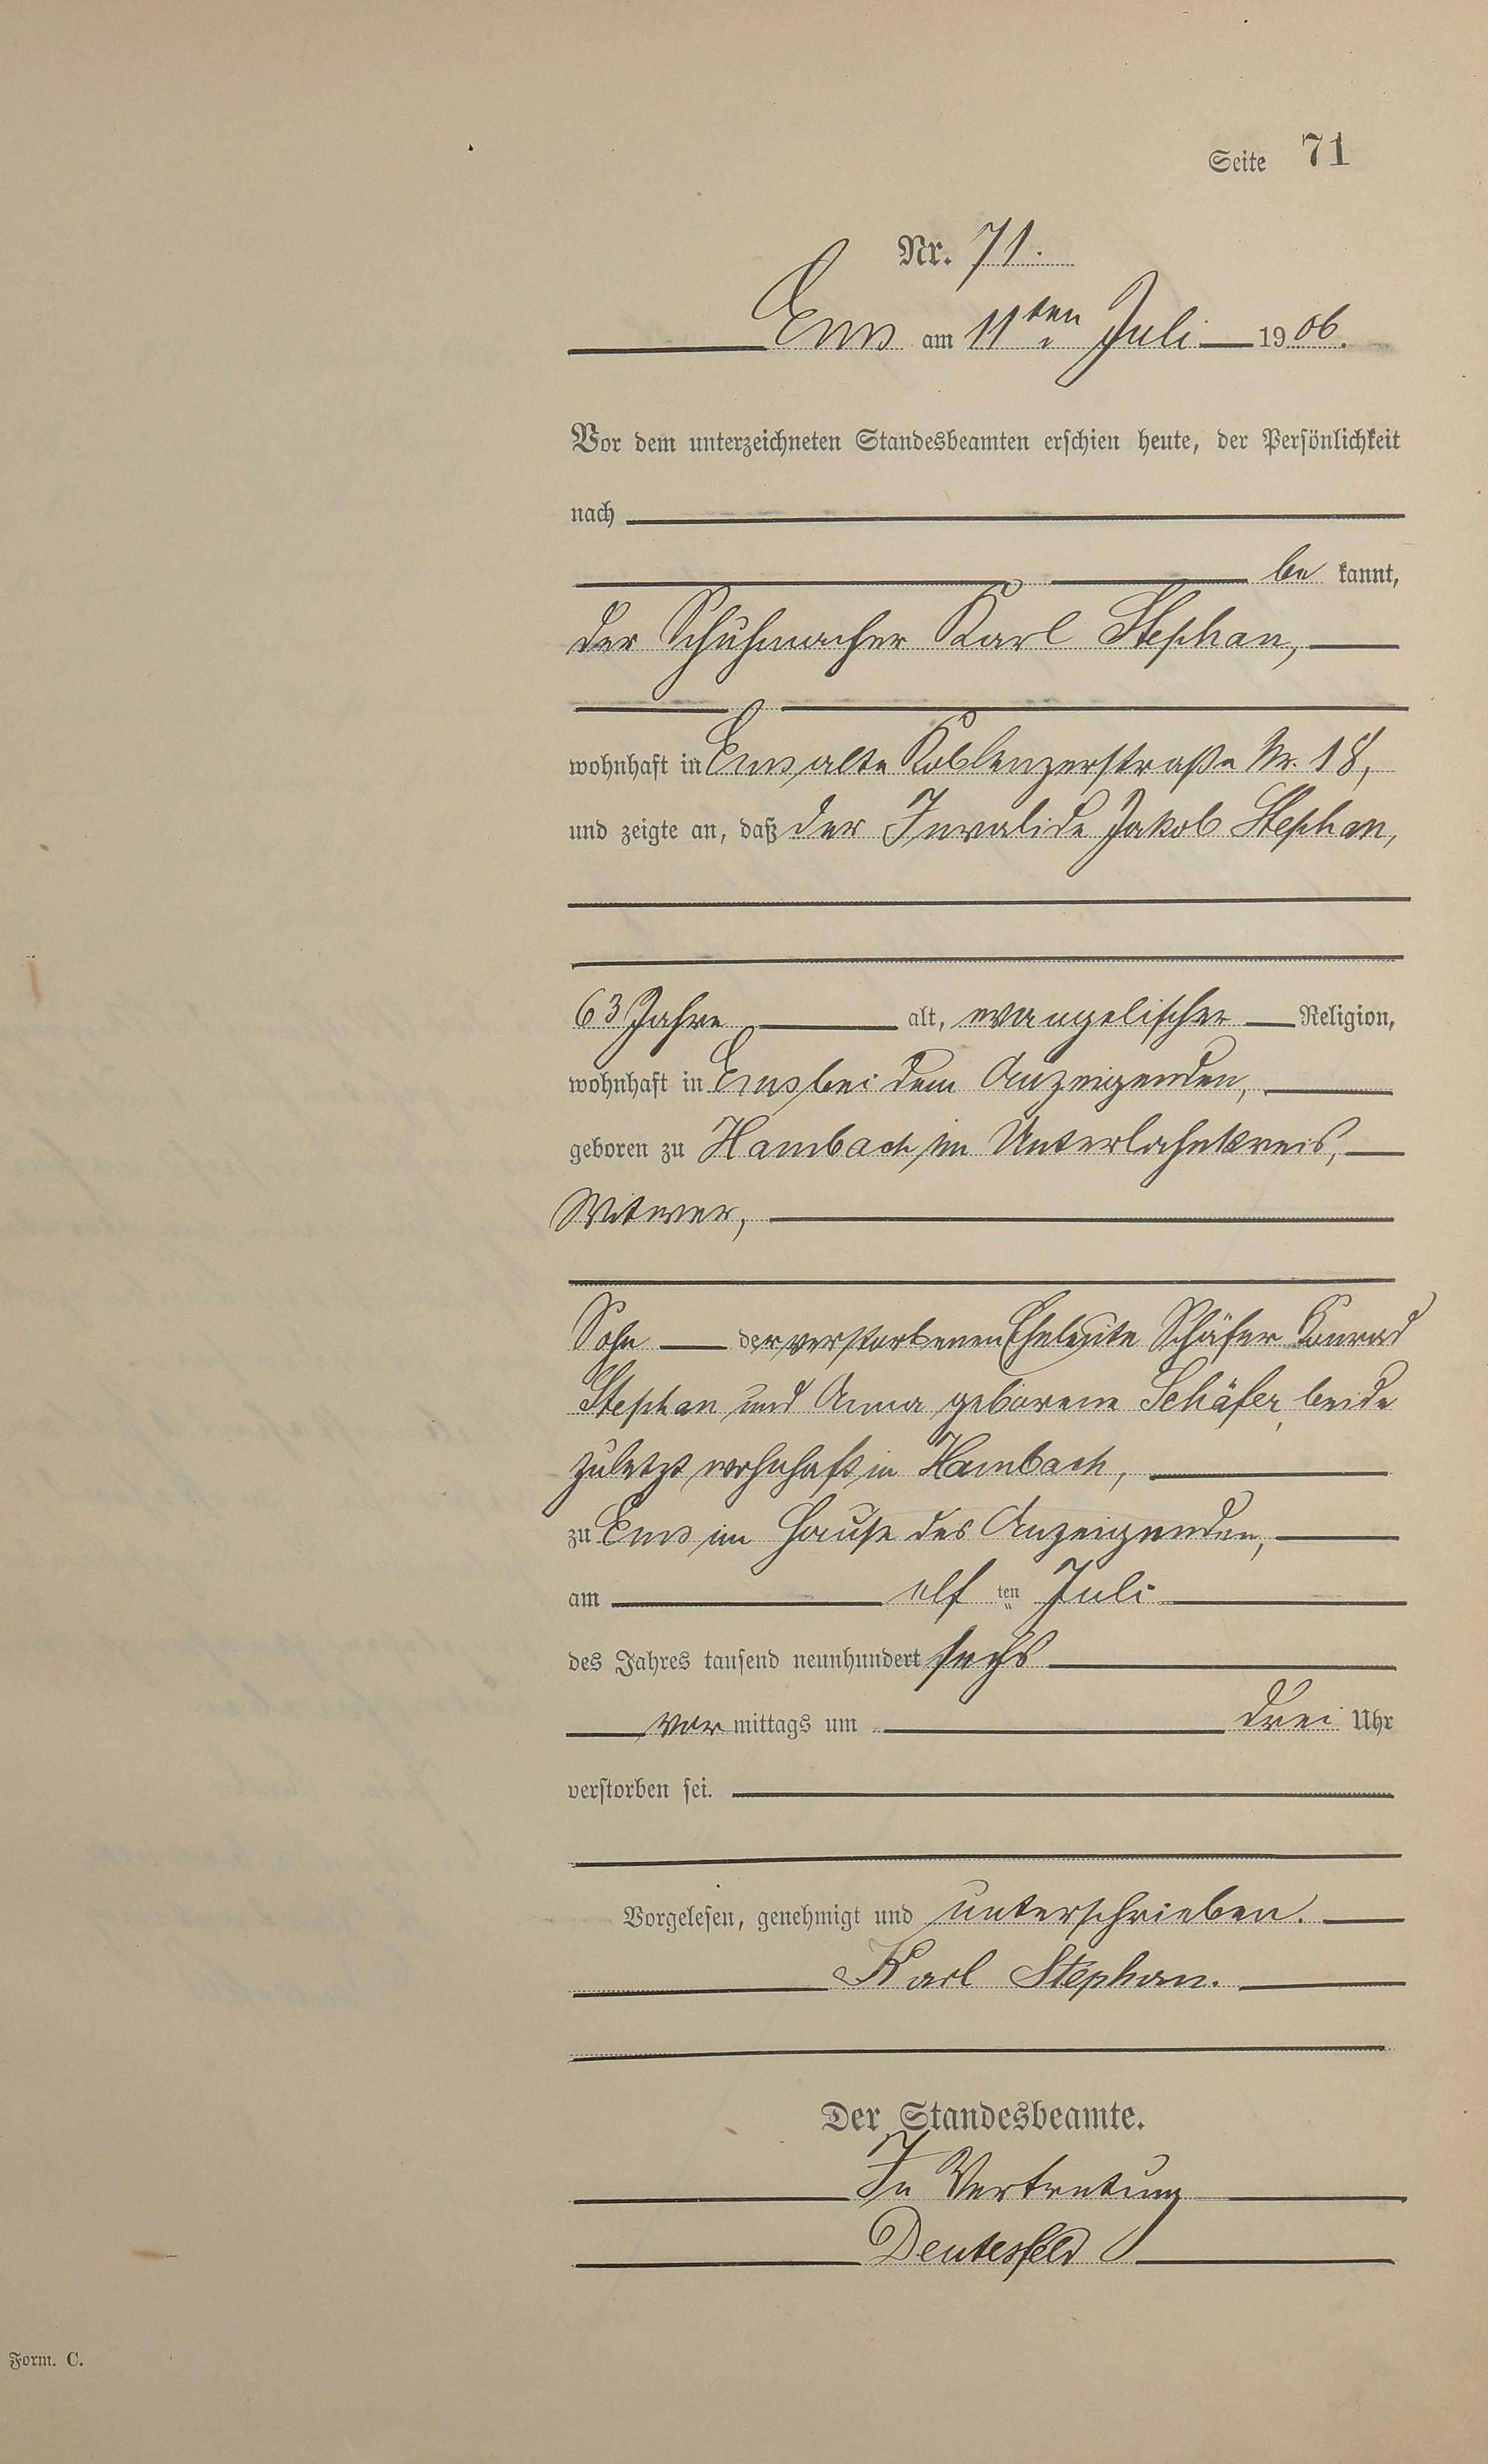 Seite 71
Nr. 71.
Ems am 11ten Juli 1906.
Vor dem unterzeichneten Standesbeamten erschien heute, der Persönlichkeit
nach
be kannt,
der Schuhmacher Karl Stephan,
wohnhaft in Ems, alte Koblenzerstraße Nr. 18,
und zeigte an, daß der Invalide Jakob Stephan,
63 Jahre alt, evangelischer Religion,
wohnhaft in Ems bei dem Anzeigenden,
geboren zu Hambach im Unterlahnkreis,
Witwer,
Sohn der verstorbenen Eheleute Schäfer Konrad
Stephan und Anna geborene Schäfer, beide
zuletzt wohnhaft in Hambach,
zu Ems im Hause des Anzeigenden,
am elf ten Juli
des Jahres tausend neunhundert sechs
vor mittags um drei Uhr
verstorben sei.
Vorgelesen, genehmigt und unterschrieben.
Karl Stephan.
Der Standesbeamte.
In Vertretung
Deutesfeld
Form. C.